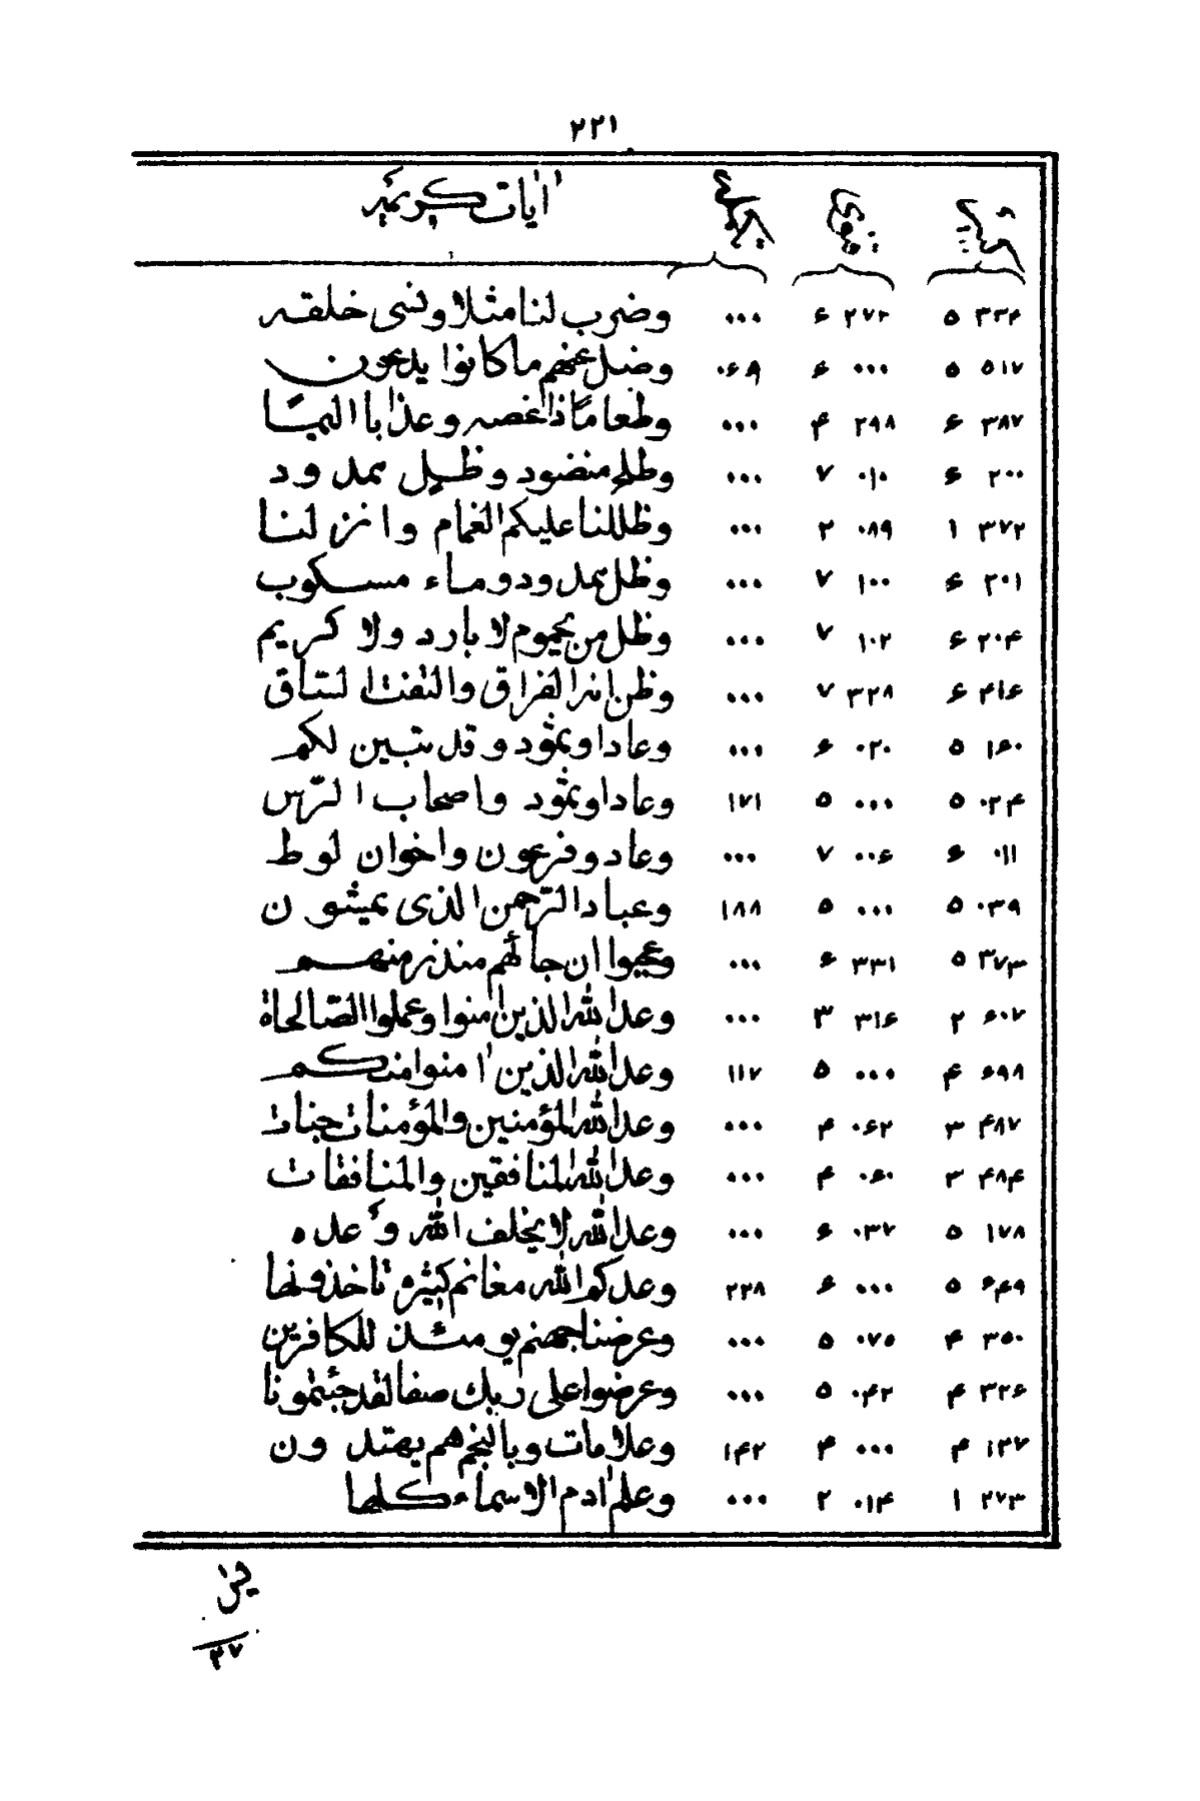 ۲۲۱
اٰیات کریمه
۵ ۳۳۴ ۶ ۲۷۲ ۰۰۰ وضرب لنا مثلا ونسی خلقه
۵ ۵۱۷ ۶ ۰۰۰ ۰۶۹ وضل عنهم ما کانوا یدعون
۶ ۳۸۷ ۴ ۲۹۸ ۰۰۰ وطعامًا ذا غصه وعذابا الیمًا
۶ ۲۰۰ ۷ ۰۱۰ ۰۰۰ وطلح منضود وظل ممدود
۱ ۳۷۲ ۲ ۰۸۹ ۰۰۰ وظللنا علیکم الغمام وانزلنا
۶ ۲۰۱ ۷ ۱۰۰ ۰۰۰ وظل ممدود وماء مسکوب
۶ ۲۰۴ ۷ ۱۰۲ ۰۰۰ وظل من یحموم لا بارد ولا کریم
۶ ۴۱۶ ۷ ۳۲۸ ۰۰۰ وظن انه الفراق والتفت الساق
۵ ۱۶۰ ۶ ۰۲۰ ۰۰۰ وعادا وثمود وقد تبین لکم
۵ ۰۲۴ ۵ ۰۰۰ ۱۷۱ وعادا وثمود واصحاب الرّس
۶ ۰۱۱ ۷ ۰۰۶ ۰۰۰ وعاد وفرعون واخوان لوط
۵ ۰۳۹ ۵ ۰۰۰ ۱۸۸ وعباد الرّحمن الذی یمشون
۵ ۳۷۳ ۶ ۳۳۱ ۰۰۰ وعجبوا ان جائهم منذر منهم
۲ ۶۰۷ ۳ ۳۱۶ ۰۰۰ وعد الله الذین اٰمنوا وعملوا الصّالحاة
۴ ۶۹۸ ۵ ۰۰۰ ۱۱۷ وعد الله الذین اٰمنوا منکم
۳ ۴۸۷ ۴ ۰۶۲ ۰۰۰ وعد الله المؤمنین والمؤمنات جنات
۳ ۴۸۴ ۴ ۰۶۰ ۰۰۰ وعد الله المنافقین والمنافقات
۵ ۱۷۸ ۶ ۰۳۷ ۰۰۰ وعد الله لا یخلف الله وعده
۵ ۶۴۹ ۶ ۰۰۰ ۲۳۸ وعدکم الله مغانم کثیره تاخذونها
۴ ۳۵۰ ۵ ۰۷۵ ۰۰۰ وعرضنا جهنم یومئذ للکافرین
۴ ۳۲۶ ۵ ۰۴۲ ۰۰۰ وعرضوا علی ربک صفا لقد جئتمونا
۴ ۱۳۷ ۴ ۰۰۰ ۱۴۲ وعلامات وبالنجم هم یهتدون
۱ ۲۷۳ ۲ ۰۱۴ ۰۰۰ وعلم اٰدم الاسماء کلها
۲۷